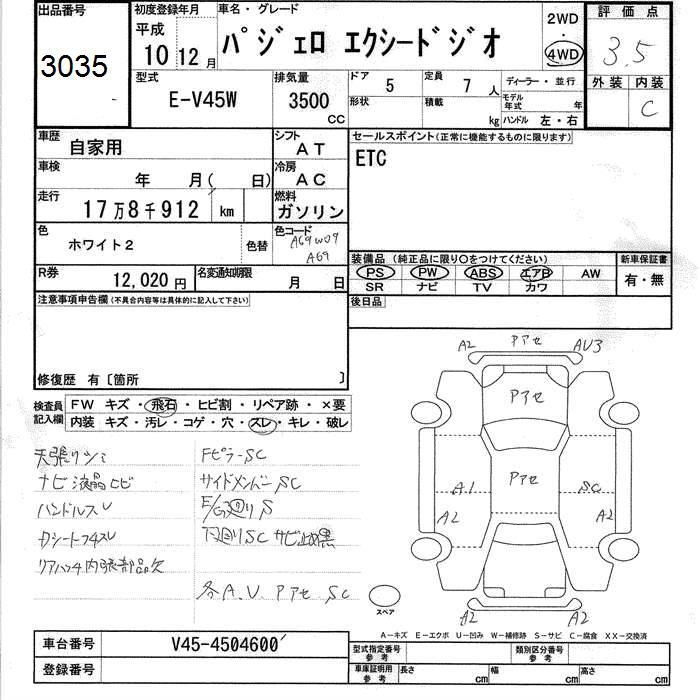 出品番号
3035
初度登録年月
平成
10年12月
車名・グレード
パジェロ エクシードジオ
2WD
・
4WD
評価点
3.5
外装 内装
C
型式
E-V45W
排気量
3500
CC
ドア 5
形状
定員 7 人
積載 kg
ディーラー・並行
モデル年式 年
ハンドル 左・右
車歴 自家用
シフト AT
車検 年 月( 日)
冷房 AC
走行 17万8千912 km
燃料 ガソリン
色 ホワイト2 色替
色コード
A69W09
A69
R券 12,020円
名変通知期限 月 日
セールスポイント(正常に機能するものに限ります)
ETC
装備品(純正品に限り○をつけてください)
PS PW ABS エアB AW
SR ナビ TV カワ
新車保証書
有・無
後日品
注意事項申告欄(不具合内容等は具体的に記入して下さい)
修復歴 有〔箇所 〕
検査員記入欄
FW キズ・飛石・ヒビ割・リペア跡・×要
内装 キズ・汚レ・コゲ・穴・スレ・キレ・破レ
天張リシミ
ナビ液晶ヒビ
ハンドルスレ
Dシートフチスレ
リアハッチ内張部品欠
Fピラ-SC
サイドメンバーSC
E/G廻りS
下廻りSC サビ止め黒
各A.U アアセ SC
A2 アアセ AU3
アアセ
A1 アアセ SC
A2 A2
A2 A2
スペア
A-キズ E-エクボ U-凹み W-補修跡 S-サビ C-腐食 XX-交換済
車台番号 V45-4504600
登録番号
型式指定番号
参考
類別区分番号
参考
車庫証明用
参考
長さ cm 幅 cm 高さ cm